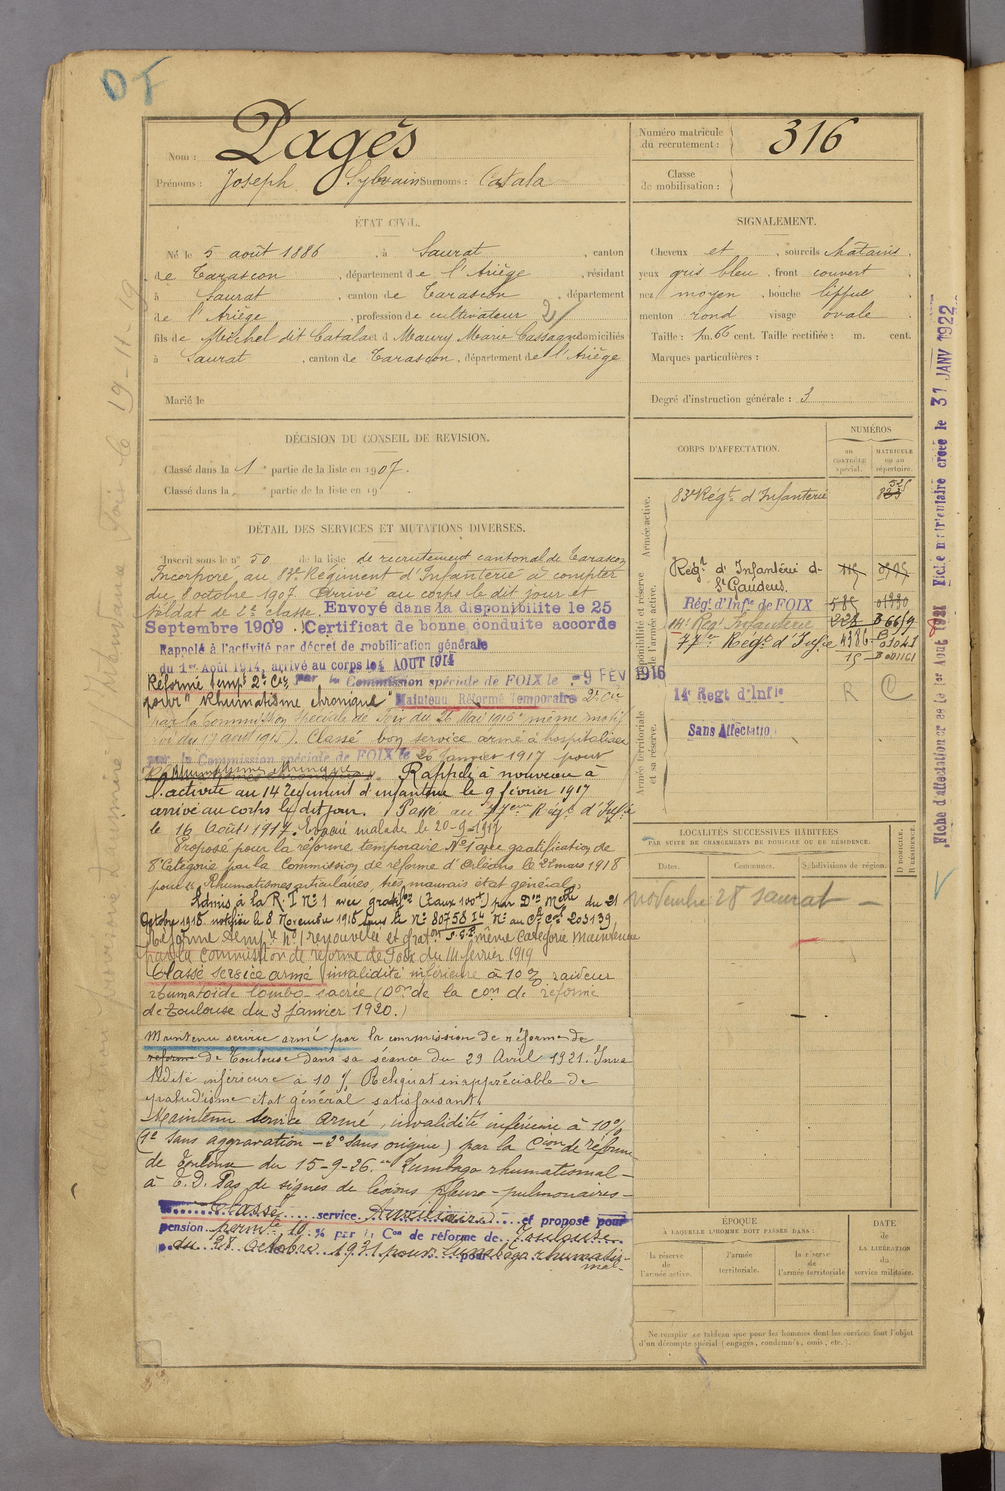 DF
Nom : Pagès
Prénoms : Joseph Sylvain Surnoms : Catala
Numéro matricule du recrutement : 316
Classe de mobilisation :
ÉTAT CIVIL.
Né le 5 août 1886, à Saurat, canton
de Tarascon, département de l'Ariège, résidant
à Saurat, canton de Tarascon, département
de l'Ariège, profession de cultivateur 2/
fils de Michel dit Catala et d Maury Marie Cassagne domiciliés
à Saurat, canton de Tarascon, département de l'Ariège
Marié le
SIGNALEMENT.
Cheveux et, sourcils chatains,
yeux gris bleu, front couvert
nez moyen, bouche lippue,
menton rond visage ovale
Taille : 1m. 66 cent. Taille rectifiée : m. cent.
Marques particulières :
Degré d'instruction générale : 3
DÉCISION DU CONSEIL DE REVISION.
Classé dans la 1e partie de la liste en 1907.
Classé dans la e partie de la liste en 19 .
DÉTAIL DES SERVICES ET MUTATIONS DIVERSES.
Inscrit sous le n° 50 de la liste de recrutement cantonal de Tarascon
Incorporé au 83e Régiment d'Infanterie à compter
du 8 octobre 1907. Arrivé au corps le dit jour et
soldat de 2e classe. Envoyé dans la disponibilité le 25
Septembre 1909. Certificat de bonne conduite accordé
Rappelé à l'activité par décret de mobilisation générale
du 1er Août 1914, arrivé au corps le 4 AOUT 1914
Réformé temp. 2e Cie par la Commission spéciale de FOIX le -9 FEV 1916
pour "Rhumatisme chronique" Maintenu Réformé Temporaire 2e Cie
par la Commission spéciale de Foix du 26 Mai 1916 même motif
(loi du 17 août 1915). Classé bon service armé à hospitaliser
par la Commission spéciale de FOIX le 26 Janvier 1917 pour
Rhumatisme chronique. Rappelé à nouveau à
l'activité au 14 Régiment d'infanterie le 9 février 1917
arrivé au corps le dit jour. Passé au 77eme Rég. d'Infie
le 16 Août 1917. Evacué malade le 20-9-1917
Proposé pour la réforme temporaire N°1 avec gratification de
8e Catégorie par la Commission de réforme d'Orléans le 22 mars 1918
pour Rhumatismes articulaires, très mauvais état général,
Admis à la R.T. N° 1 avec gratifon (taux 100f) par Don Melle du 21
Octobre 1918 notifiée le 8 Novembre 1918 sous le N° 80758 I4 N° au 203139.
Réforme temp. n° 1 renouvelée et grat. même catégorie maintenue
par la commission de réforme de Foix du 14 février 1919
Classé service armé invalidité inférieure à 10 % raideur
rhumatoïde lombo-sacrée (Don de la Con de réforme
de Toulouse du 3 Janvier 1920.)
Maintenu service armé par la commission de réforme de
réforme de Toulouse dans sa séance du 29 Avril 1921. Inva
lidité inférieure à 10 % Reliquat inappréciable de
paludisme état général satisfaisant.
Maintenu service armé, invalidité inférieure à 10 %
(1° sans aggravation - 2° sans origine) par la Cion de réforme
de Toulouse du 15-9-26. Lumbago rhumatismal -
à E.D. Pas de signes de lésions pleuro-pulmonaires -
Classé service Auxiliaire et proposé pour
pension permte 10 % par la Con de réforme de Toulouse
du 28 octobre 1931 pour Lumbago rhumatis-
mal.
CORPS D'AFFECTATION.
NUMÉROS
AU CONTRÔLE spécial.
MATRICULE ou au répertoire.
Armée active.
83e Régt d'Infanterie
Disponibilité et réserve de l'armée active.
Régt d'Infanterie de St Gaudens
Rég. d'Infie de FOIX 586 01980
14e Régt Infanterie 228 B 6619
77e Régt d'Infie 4386
Armée territoriale et sa réserve.
14e Regt d'Infie R C
Sans Affectation
LOCALITÉS SUCCESSIVES HABITÉES
PAR SUITE DE CHANGEMENTS DE DOMICILE OU DE RÉSIDENCE.
Dates. Communes. Subdivisions de région. D DOMICILE. R RÉSIDENCE.
novembre 28 Saurat -
ÉPOQUE
À LAQUELLE L'HOMME DOIT PASSER DANS :
la réserve de l'armée active.
l'armée territoriale.
la réserve de l'armée territoriale
DATE de LA LIBÉRATION du service militaire.
Ne remplir ce tableau que pour les hommes dont les services font l'objet
d'un décompte spécial (engagés, condamnés, omis, etc.).
Fiche d'affectation créée le 1er Aout 1921 Fiche matriculaire créée le 31 JANV 1922